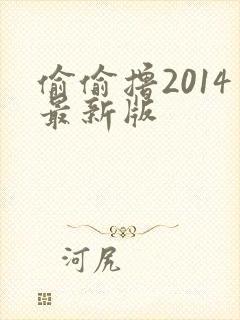 偷偷撸2014
最新版
河尻